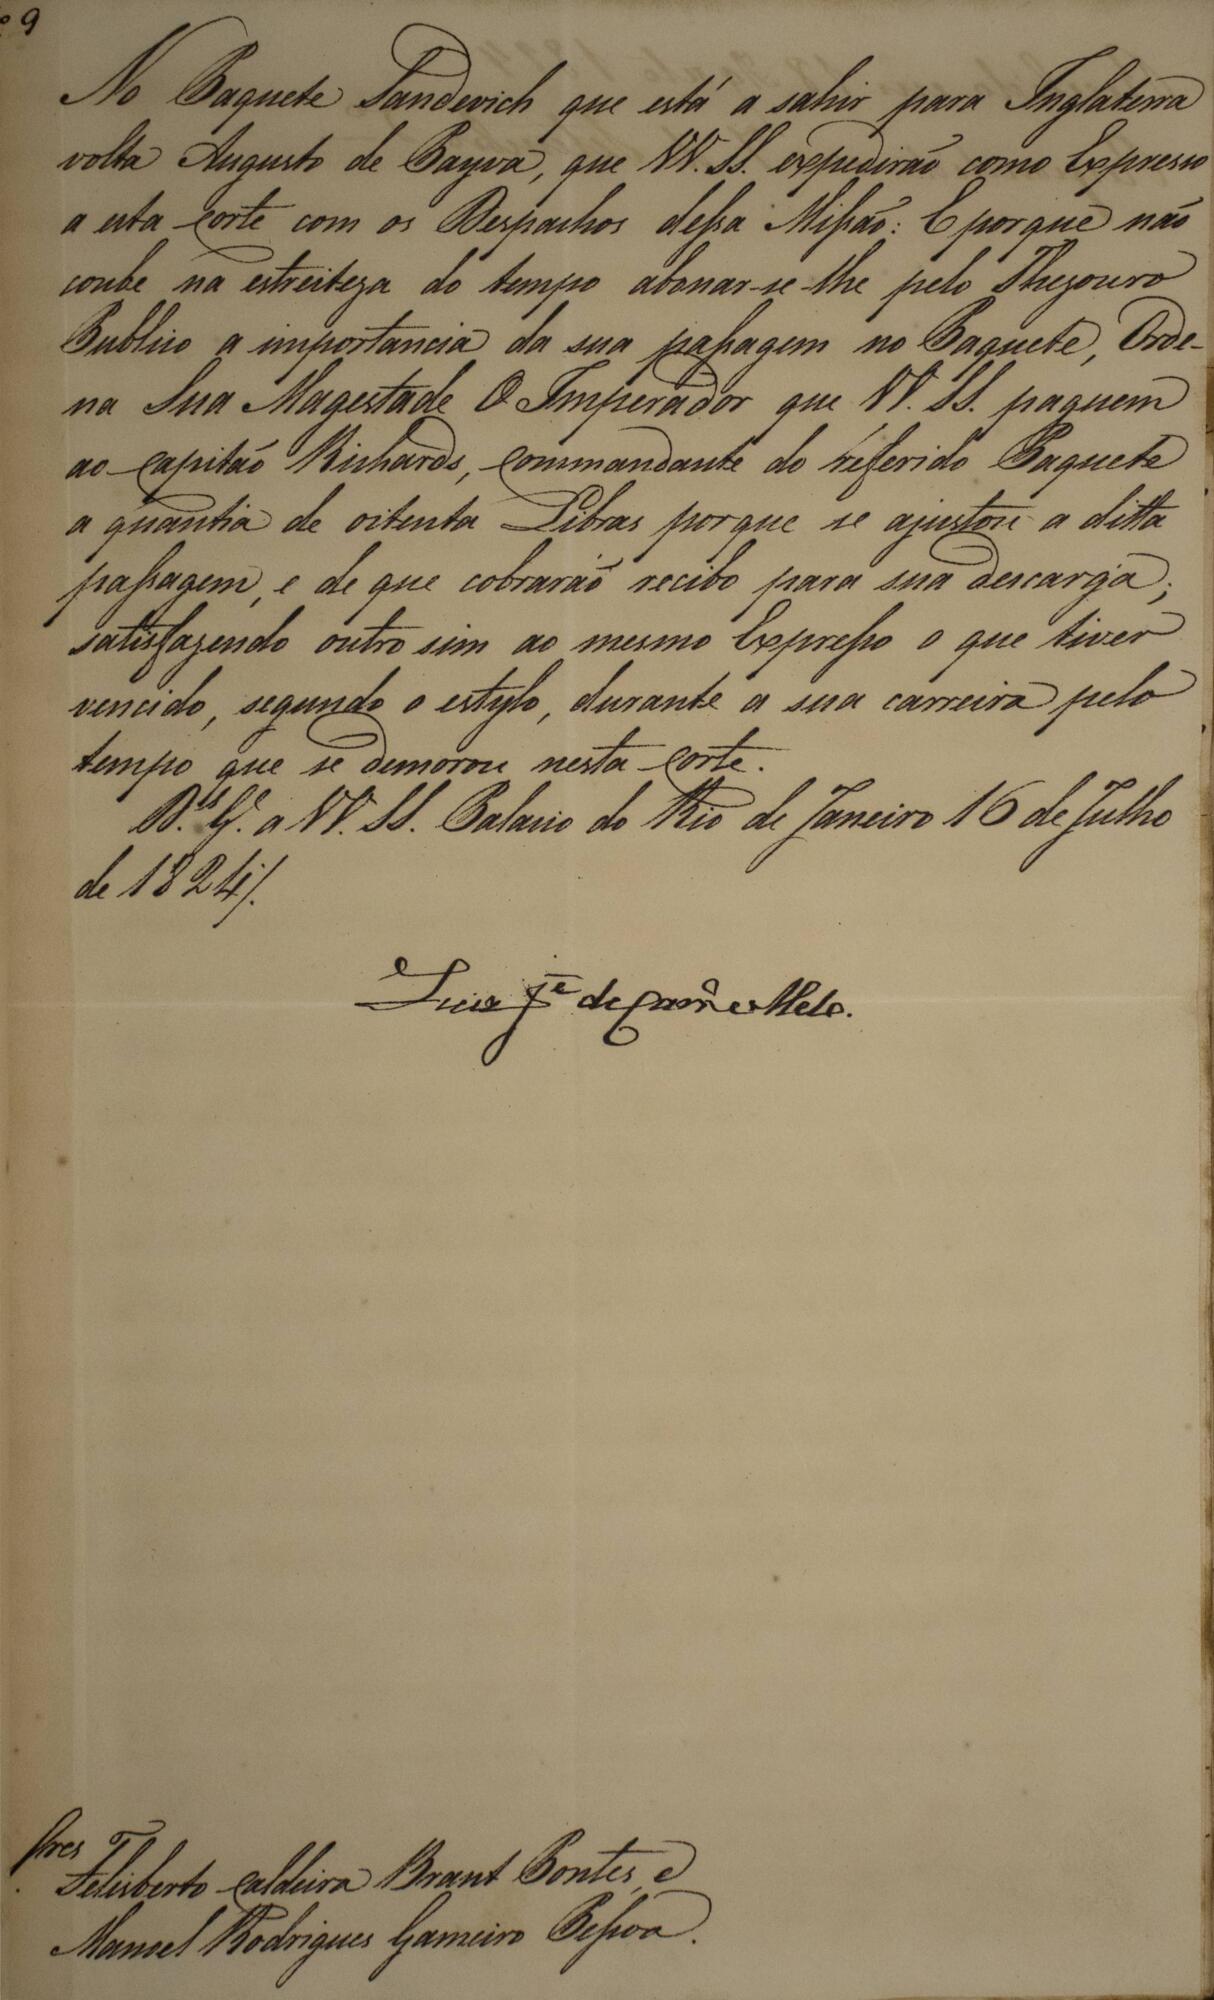 º 9
No Paquete Sandevich que está a sahir para Inglaterra
volta Augusto de Payva, que VV. SS. expedirão como Expresso
a esta Corte com os Despachos dessa Missão: E porque não
coube na estreiteza do tempo abonar-se-lhe pelo Thezouro
Publico a importancia da sua passagem no Paquete, Orde-
na Sua Magestade O Imperador que VV. SS. paguem
ao Capitão Richards, Commandante do referido Paquete
a quantia de oitenta Libras porque se ajustou a ditta
passagem, e de que cobrarão recibo para sua descarga;
satisfazendo outro sim ao mesmo Expresso o que tiver
vencido, segundo o estylo, durante a sua carreira pelo
tempo que se demorou nesta Corte.
D.s G.e a VV. SS. Palacio do Rio de Janeiro 16 de Julho
de 1824/.
Luiz J.e de Carv.o e Mello.
Snres
Felisberto Caldeira Brant Pontes, e
Manoel Rodrigues Gameiro Pessoa.